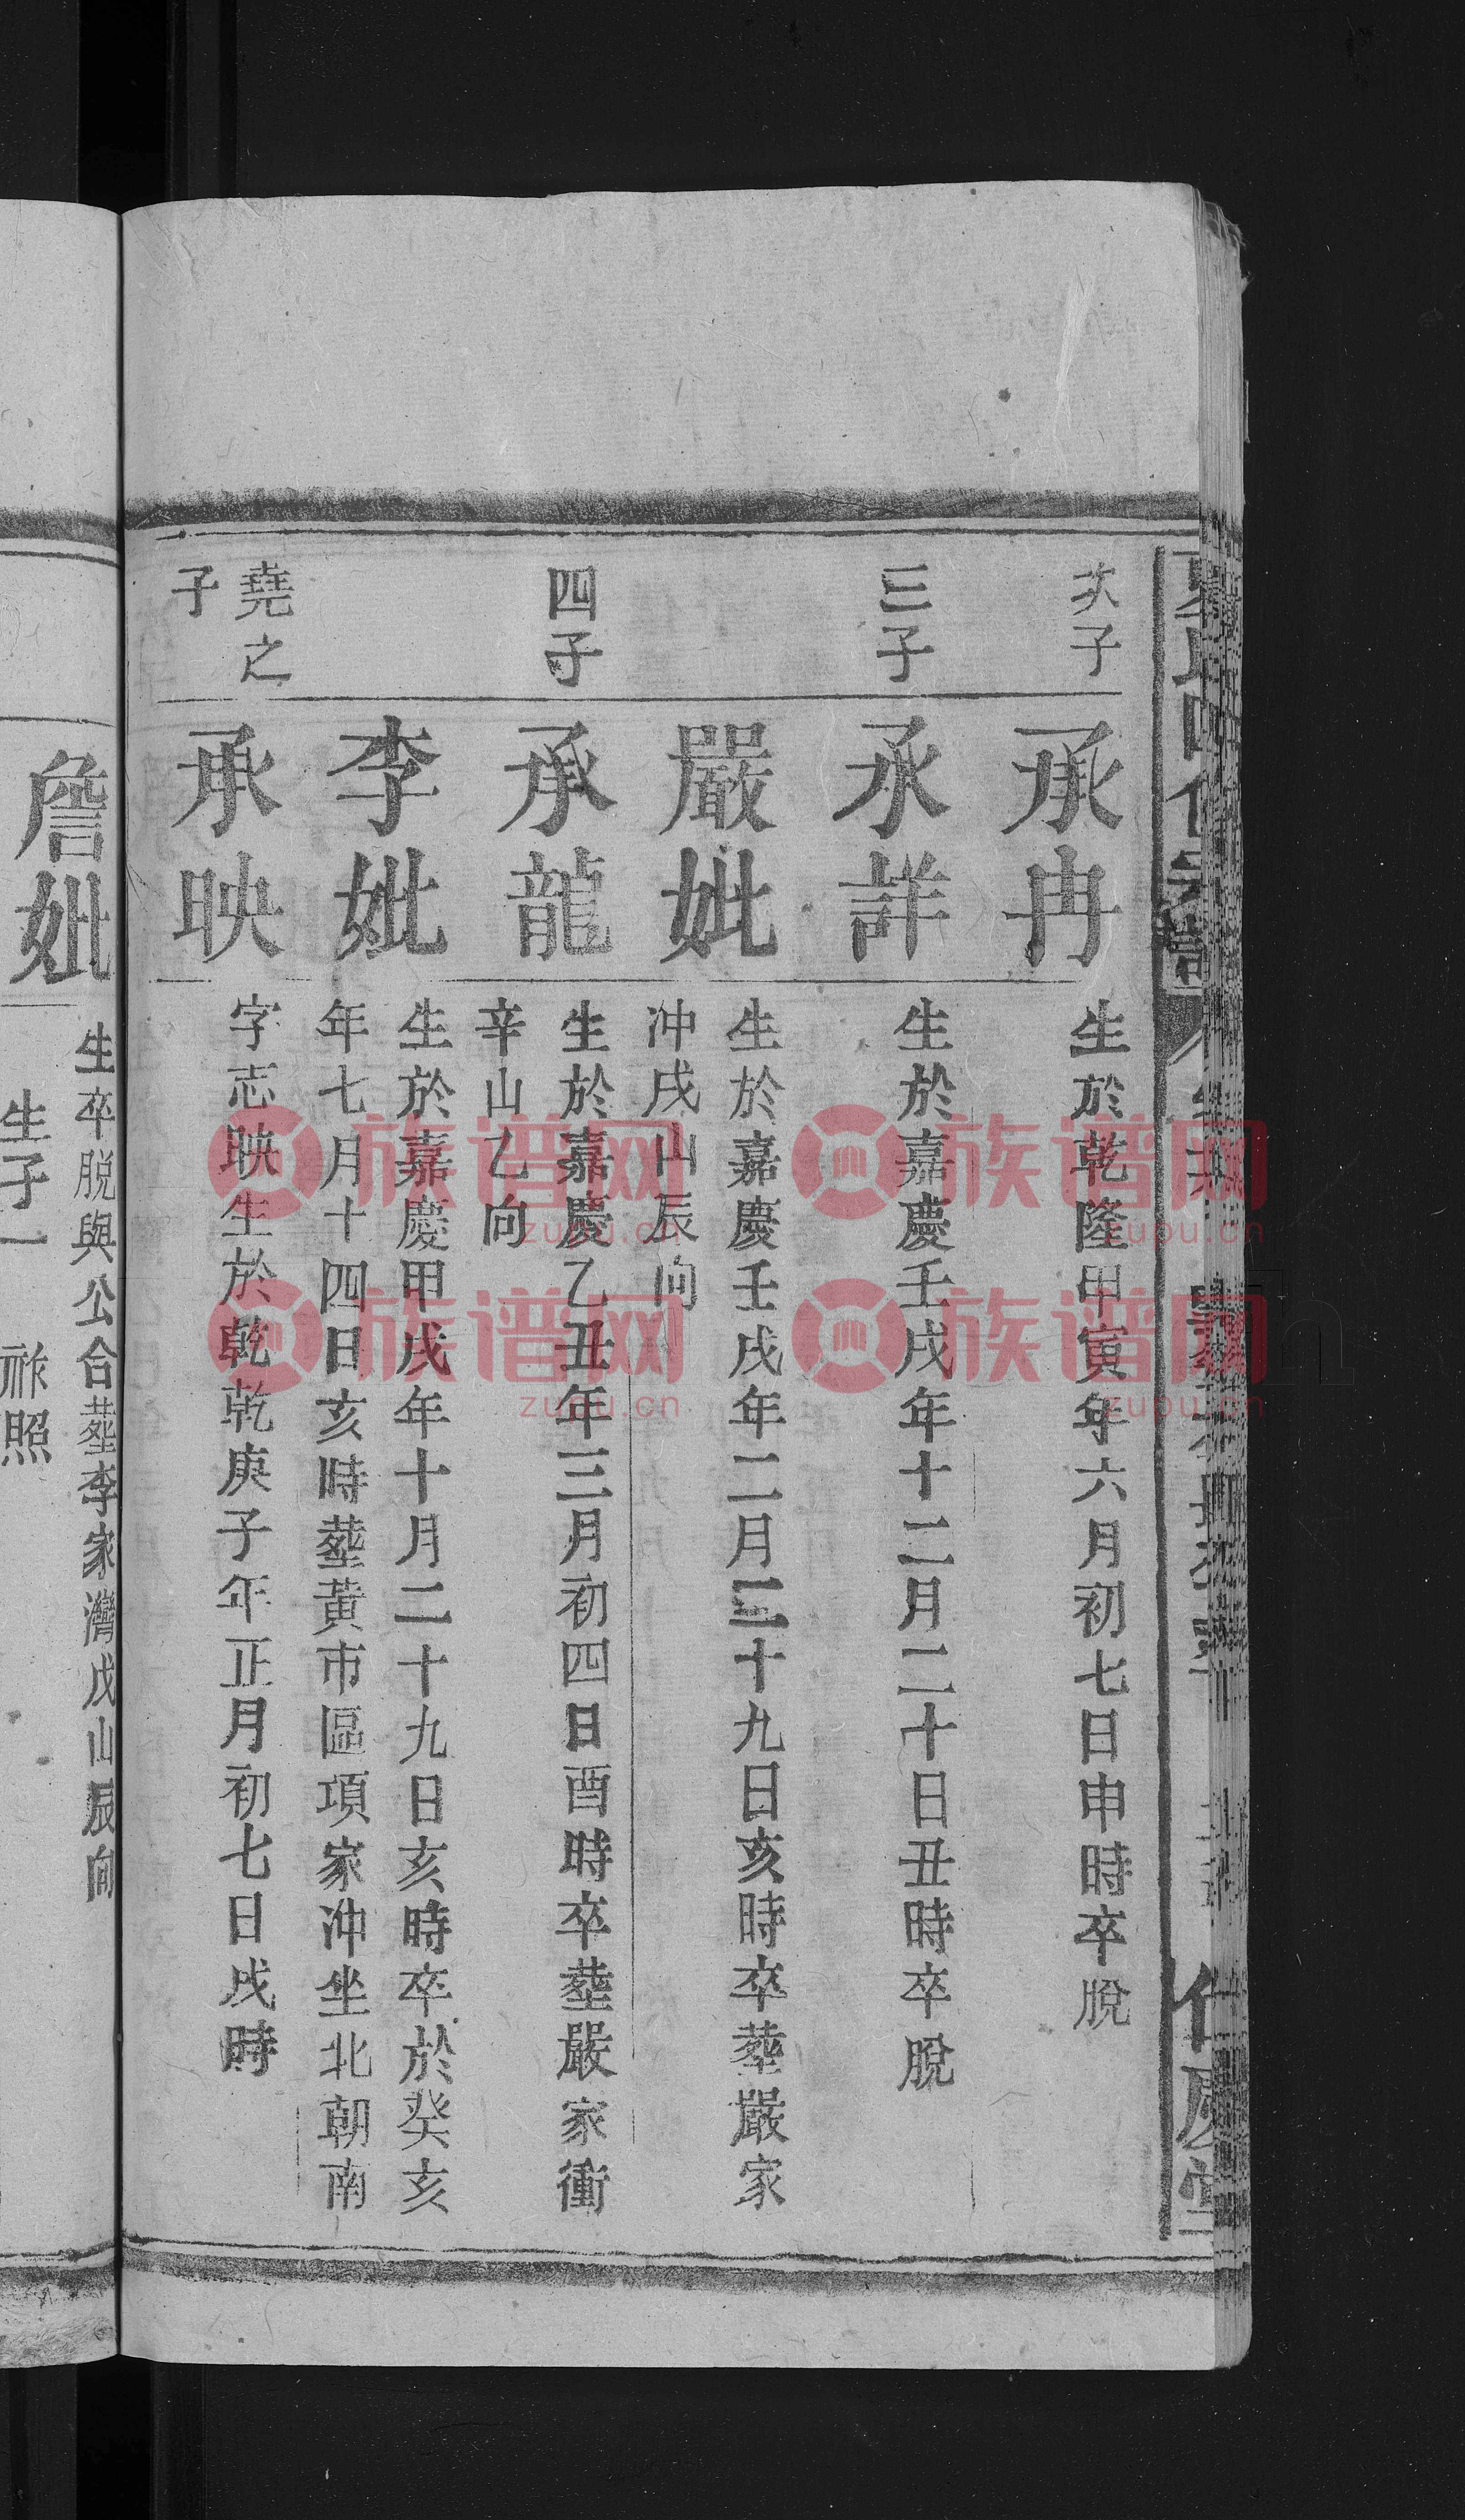 次子
承冉
生於乾隆甲寅年六月初七日申時卒脫
三子
承詳
生於嘉慶壬戌年十二月二十日丑時卒脫
嚴妣
生於嘉慶壬戌年二月二十九日亥時卒塟嚴家
冲戌山辰向
四子
承龍
生於嘉慶乙丑年三月初四日酉時卒塟嚴家衝
辛山乙向
李妣
生於嘉慶甲戌年十月二十九日亥時卒於癸亥
年七月十四日亥時塟黄市區項家冲坐北朝南
堯之
子
承映
字志映生於乾乾庚子年正月初七日戌時
詹妣
生卒脫與公合塟李家灣戌山辰向
生子一 祚照
族谱网
zupu.cn
族谱网
zupu.cn
族谱网
zupu.cn
族谱网
zupu.cn